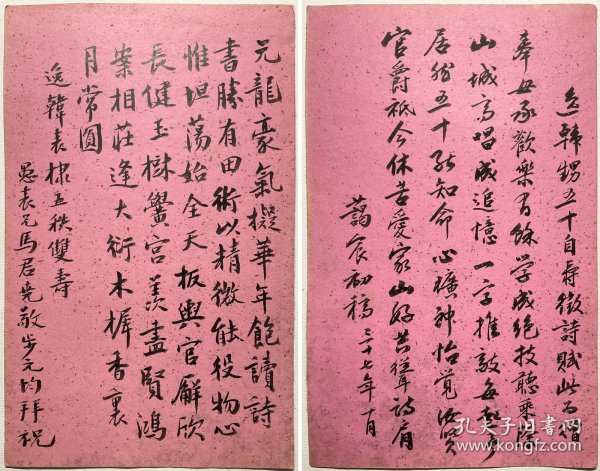 元龍豪氣擬華年飽讀詩
書勝有田術以精微能役物心
惟坦蕩始全天板輿官廨欣
長健玉樹黌宮羨盡賢鴻
案相莊逢大衍木樨香裏
月常圓
逸韓表棣五秩雙壽
愚表兄馬君先敬步元韵拜祝
逸韓甥五十自壽徵詩賦此為贈
奉母承歡樂有餘學成絕技聽乘除
山城高唱成追憶一字推敲每起予
居然五十能知命心曠神怡覺汝賢
官爵祇今休苦愛家山好共聳詩肩
初稿三十七年十月
孔夫子旧书网
www.kongfz.com